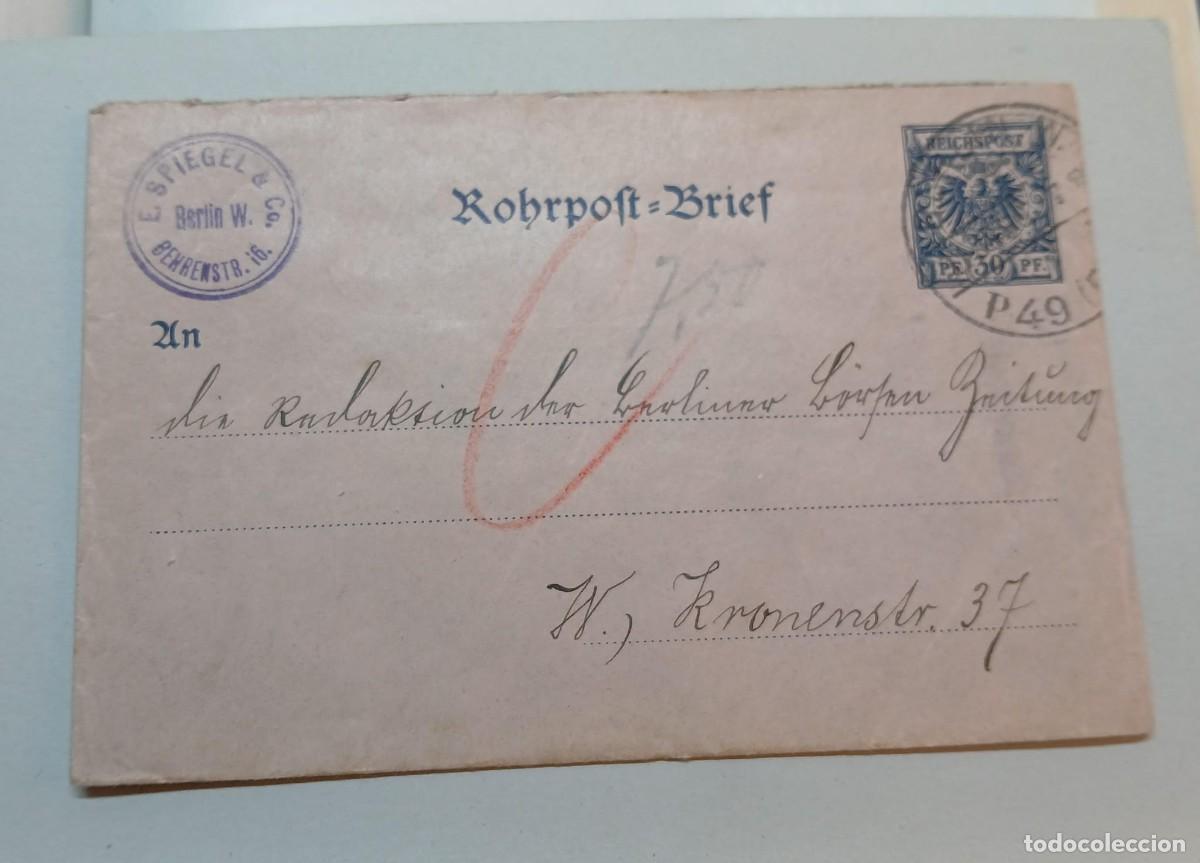 E. SPIEGEL & Co.
Berlin W.
BEHRENSTR. 16.
Rohrpoſt-Brief
REICHSPOST
PF. 30 PF.
W.
P 49
7,50
An
die Redaktion der Berliner Börsen Zeitung
W., Kronenstr. 37
todocoleccion